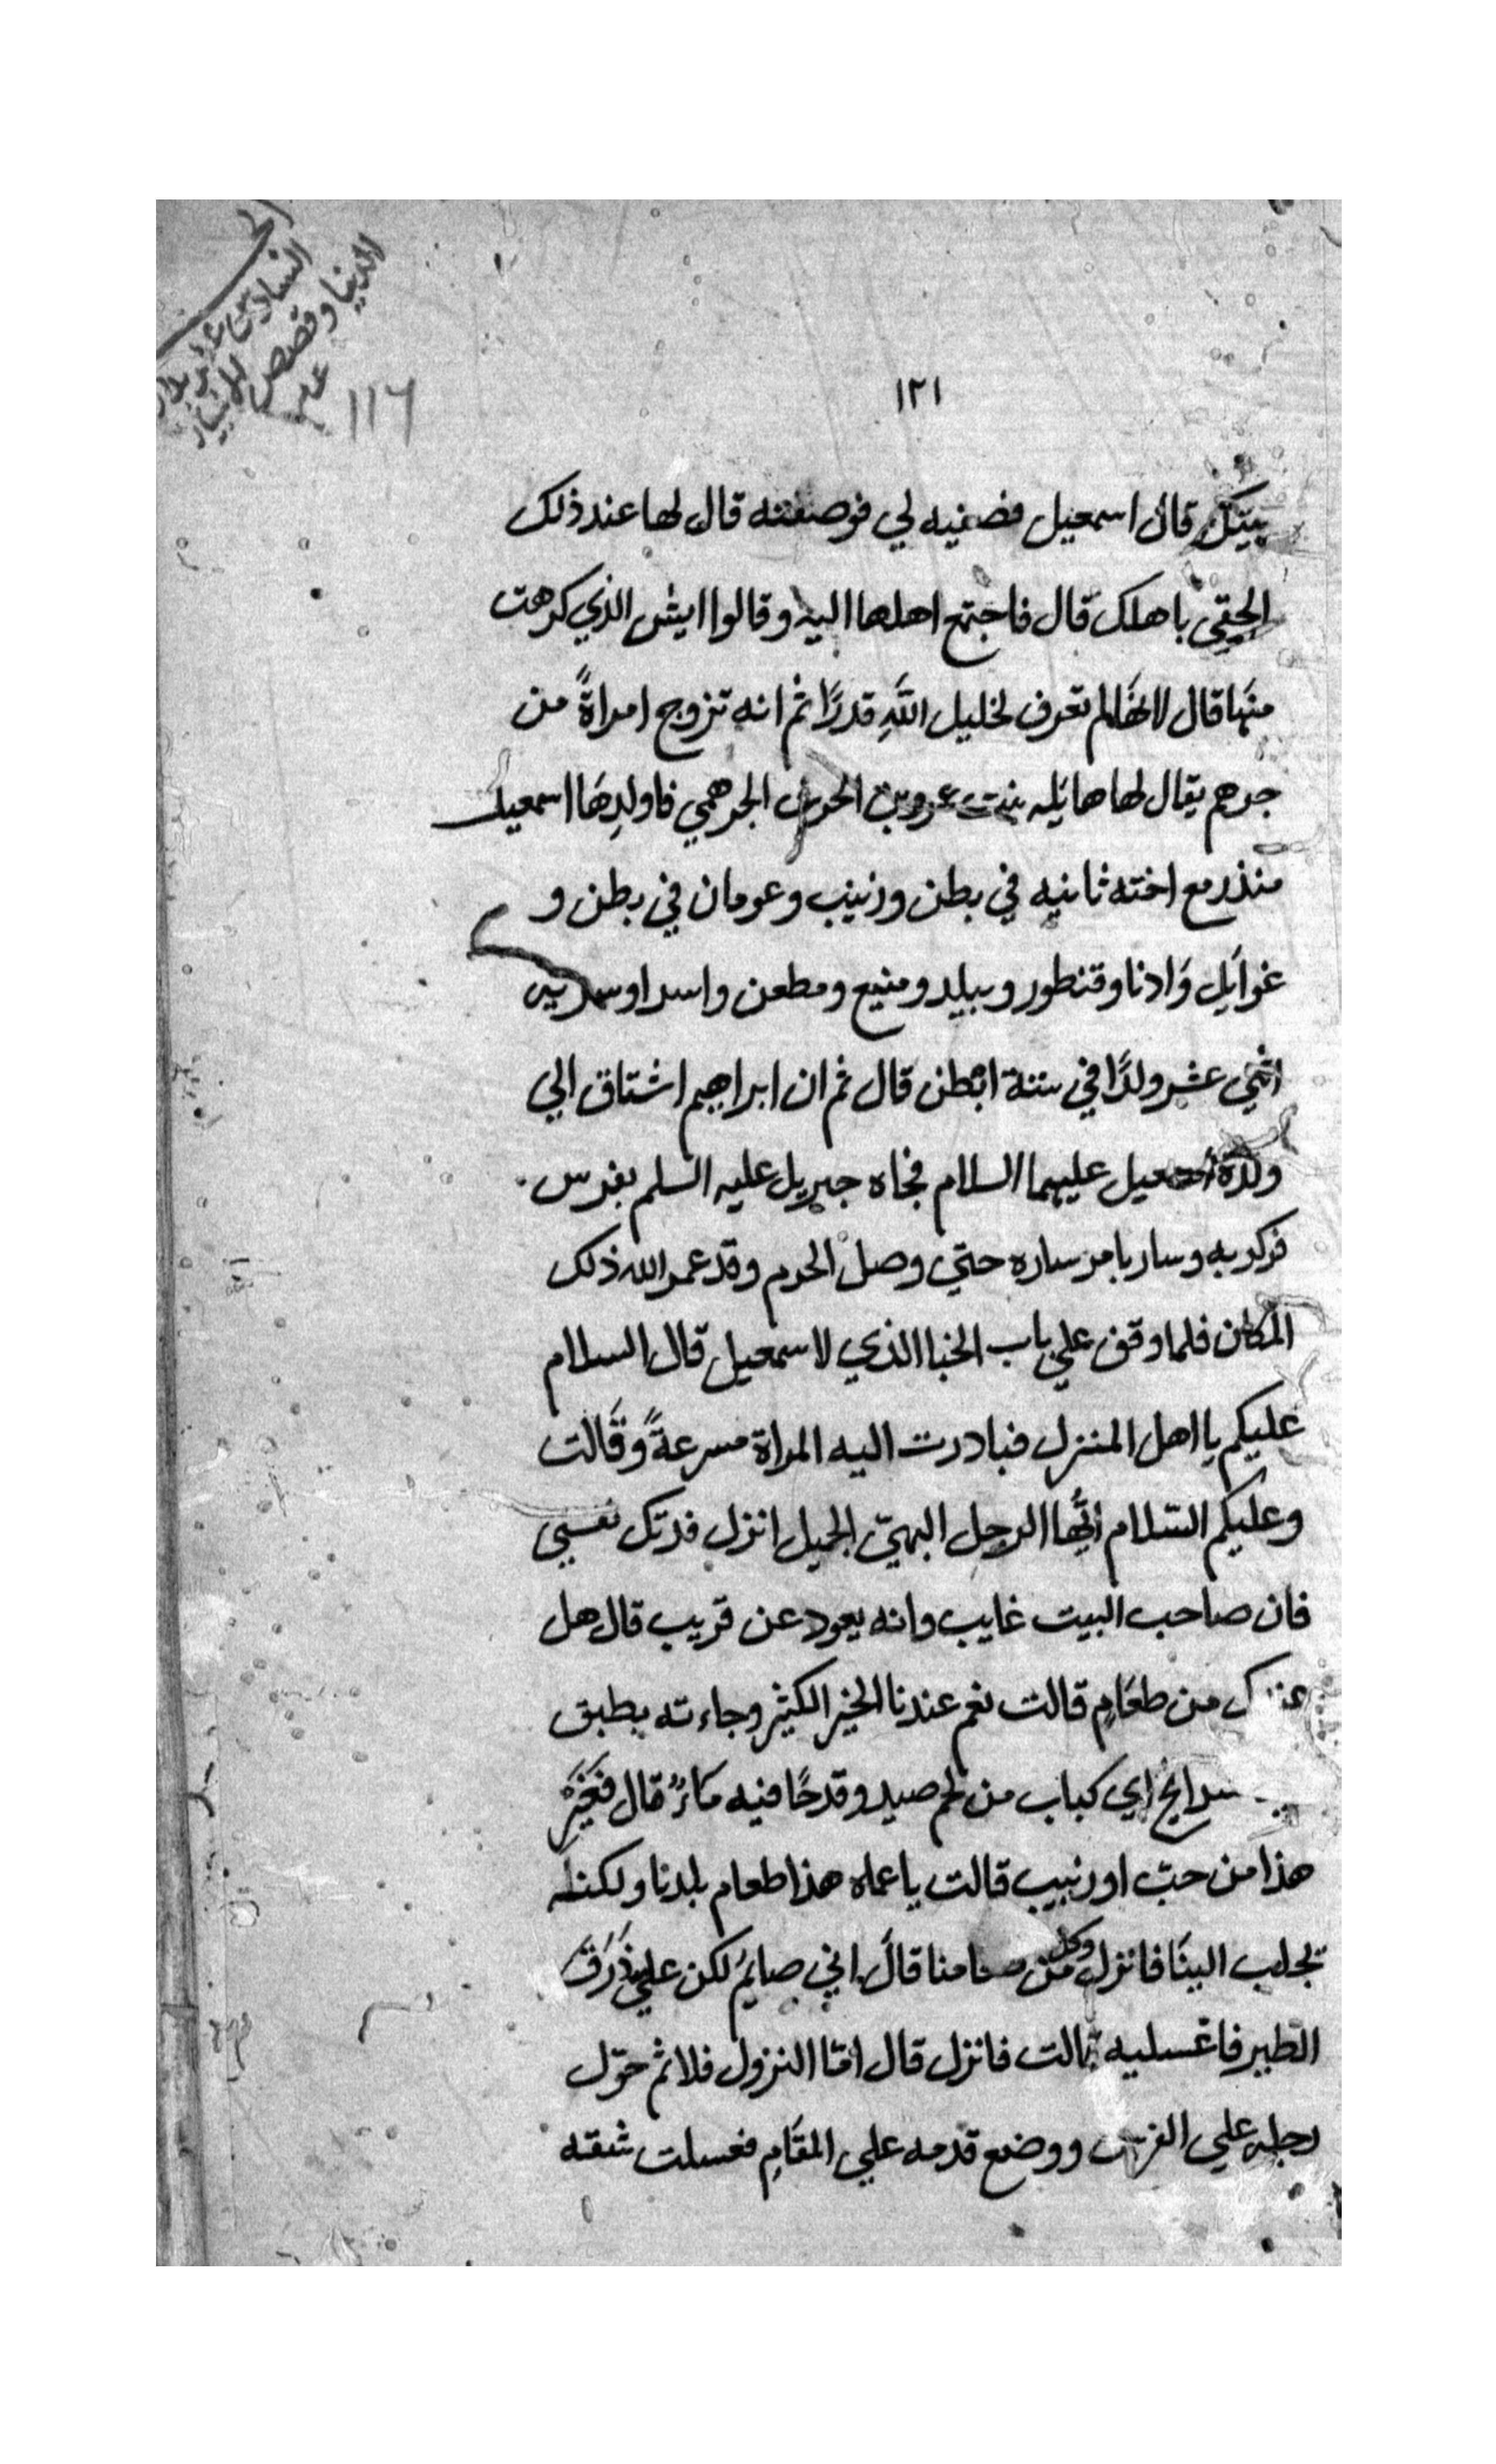 الجز
السادس من بدا
الدنيا وقصص الانبيا
عدد
116
١٢١
بيتك قال اسمعيل فصفيه لي فوصفته قال لها عند ذلك
الحقي باهلك قال فاجتمع اهلها اليه وقالوا ايش الذي كرهت
منها قال لانها لم تعرف لخليل الله قدرًا ثم انه تزوج امراةً من
جرهم يقال لها هايله بنت عمرو بن الحرث الجرهمي فاولدها اسمعيل
منذر مع اخته ثانيه في بطن وزينب وعومان في بطن و
غوايل وادنا وقنطور وبيليد ومنيع ومطعن واسدا
اثني عشر ولدًا في ستة ابطن قال ثم ان ابراهيم اشتاق الي
ولده اسمعيل عليهما السلام فجاه جبريل عليه السلم بفرس
فركب به وسار بامر ساره حتي وصل الحرم وقد عمر الله ذلك
المكان فلما وقف علي باب الخبا الذي لاسمعيل قال السلام
عليكم يا اهل المنزل فبادرت اليه المراة مسرعةً وقالت
وعليكم السلام ايُّها الرجل البهيّ الجميل انزل فدتك نفسي
فان صاحب البيت غايب وانه يعود عن قريب قال هل
عندك من طعام قالت نعم عندنا الخير الكثير وجاءته بطبق
اي كباب من لحم صيد وقدحًا فيه ماءٌ قال فغير
هذا من حبّ او زبيب قالت يا عماه هذا طعام بلدنا ولكنه
تجلب الينا فانزل وكل من طعامنا قال اني صايم لكن علي ذرق
الطير فاغسليه قالت فانزل قال امّا النزول فلا ثم حوّل
رجله علي الفرس ووضع قدمه علي المقام فغسلت شقه